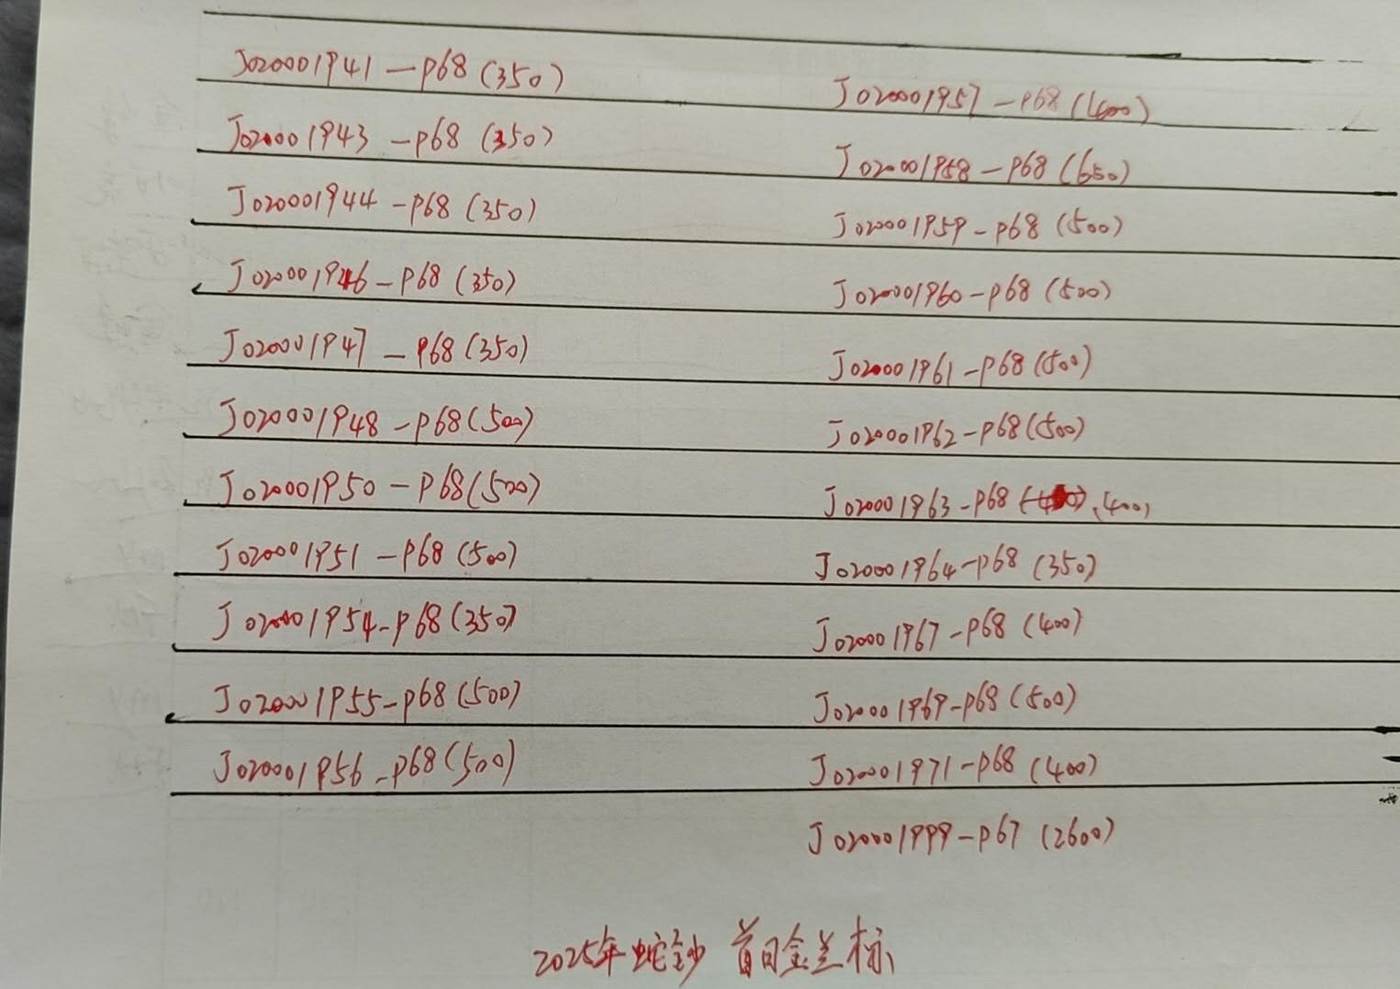 J020001941-P68(350)
J020001943-P68(350)
J020001944-P68(350)
J020001946-P68(350)
J020001947-P68(350)
J020001948-P68(500)
J020001950-P68(500)
J020001951-P68(500)
J020001954-P68(350)
J020001955-P68(500)
J020001956-P68(500)
J020001957-P68(400)
J020001958-P68(650)
J020001959-P68(500)
J020001960-P68(500)
J020001961-P68(500)
J020001962-P68(500)
J020001963-P68(400)
J020001964-P68(350)
J020001967-P68(400)
J020001969-P68(500)
J020001971-P68(400)
J020001999-P67(2600)
2025年蛇钞 首日金兰标